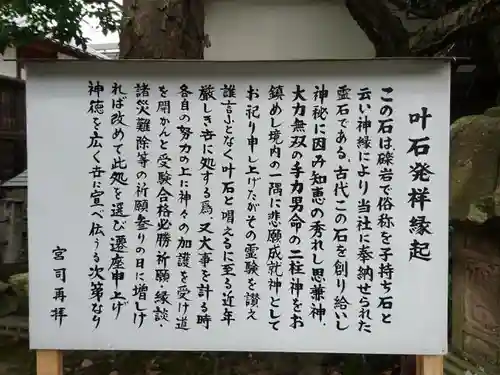 叶石発祥縁起
この石は礫岩で俗称を子持ち石と
云い神縁により当社に奉納せられた
霊石である、古代この石を創り給いし
神秘に因み知恵の秀れし思兼神、
大力無双の手力男命の二柱神をお
鎮めし境内の一隅に悲願成就神として
お祀り申し上げたがその霊験を讃え
誰言ふとなく叶石と唱えるに至る、近年
厳しき世に処する為、又大事を計る時
各自の努力の上に神々の加護を受け道
を開かんと受験合格必勝祈願・縁談・
諸災難除等の祈願参りの日に増しけ
れば改めて此処を選び遷座申上げ
神徳を広く世に宣べ伝うる次第なり
宮司再拝